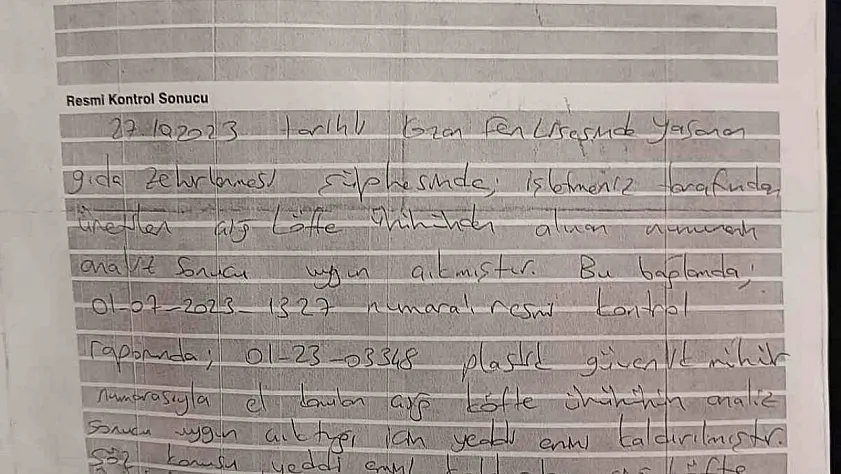 Resmi Kontrol Sonucu
27.10.2023 tarihli Kozan Fen Lisesinde yaşanan
gıda zehirlenmesi şüphesinde; işletmeniz tarafından
üretilen çiğ köfte ürününden alınan numunenin
analiz sonucu uygun çıkmıştır. Bu bağlamda;
01-07-2023-1327 numaralı resmi kontrol
raporunda; 01-23-03348 plastik güvenlik mühür
numarasıyla el konulan çiğ köfte ürününün analiz
sonucu uygun çıktığı için yeddi emin kaldırılmıştır.
Söz konusu yeddi emin